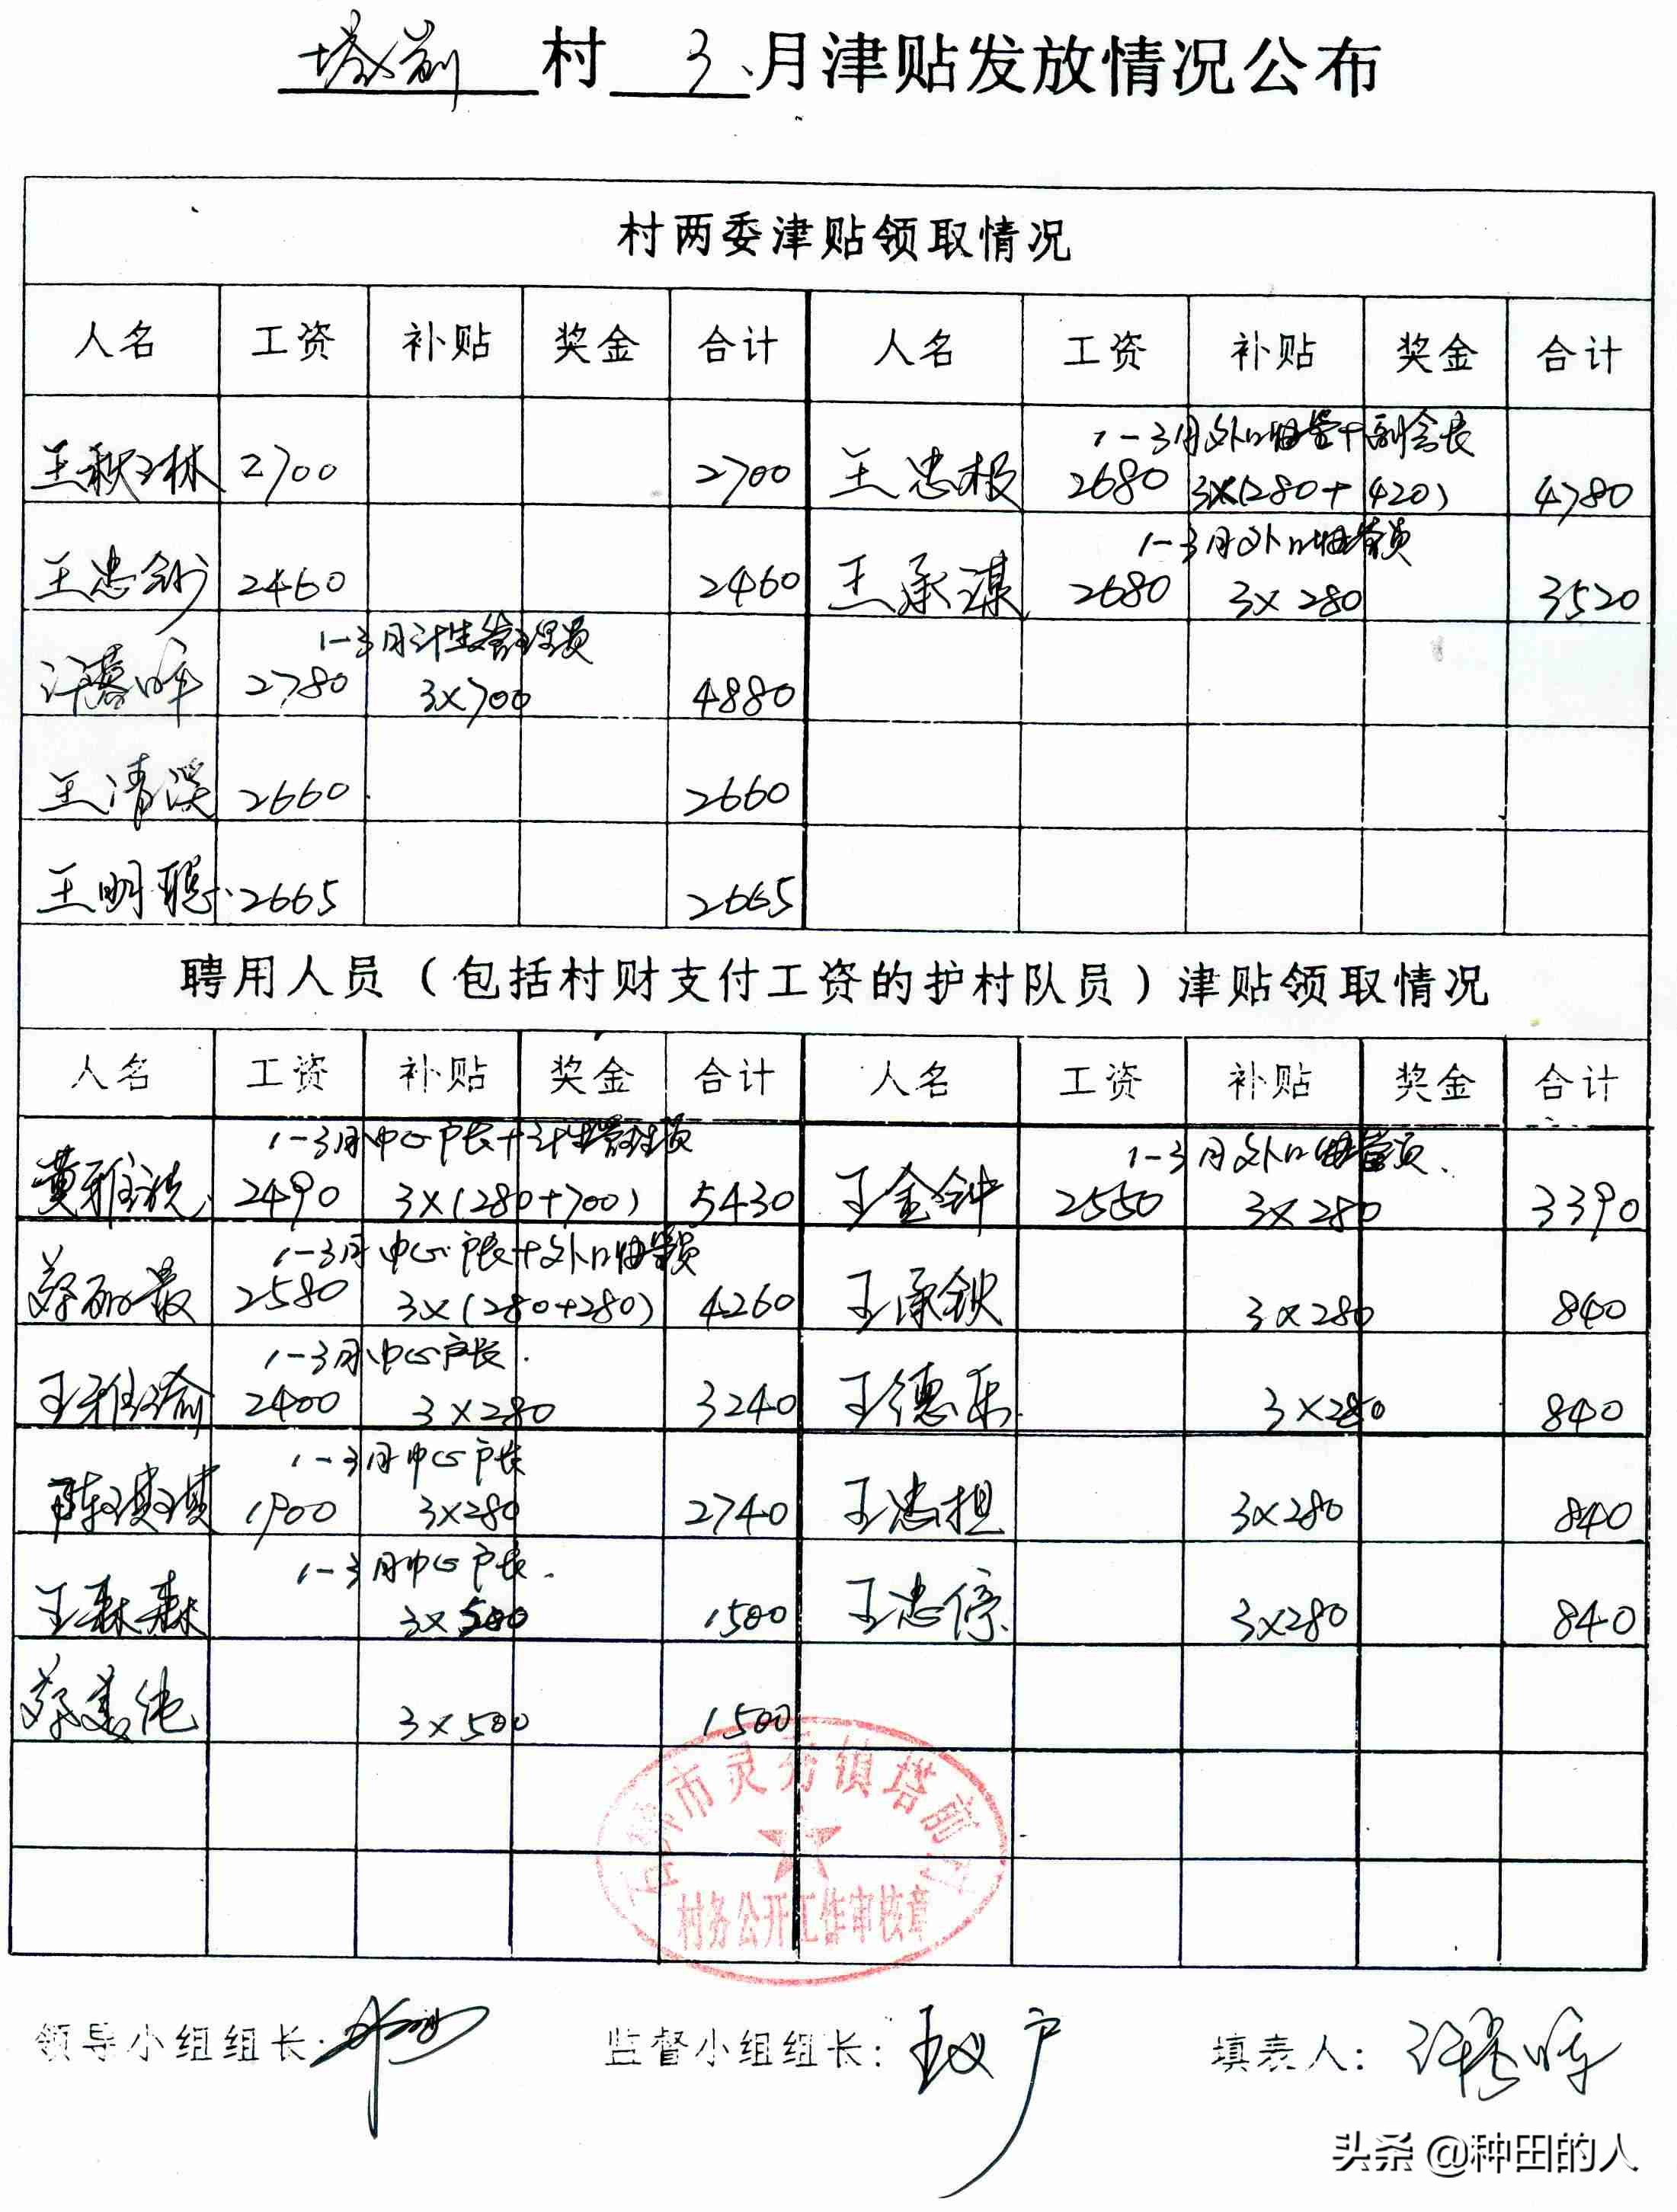 塔前 村 3、月津贴发放情况公布
村两委津贴领取情况
人名 工资 补贴 奖金 合计 人名 工资 补贴 奖金 合计
1-3月外口协管+副会长
王秋林 2700 2700 王忠枝 2680 3×(280+420) 4780
1-3月外口协管员
王忠钞 2460 2460 王承谋 2680 3×280 3520
1-3月计生管理员
许蓉晖 2780 3×700 4880
王清溪 2660 2660
王明聪 2665 2665
聘用人员（包括村财支付工资的护村队员）津贴领取情况
人名 工资 补贴 奖金 合计 人名 工资 补贴 奖金 合计
1-3月中心户长+计生管理员 1-3月外口协管员
黄雅 2490 3×(280+700) 5430 王金钟 2550 3×280 3390
1-3月中心户长+外口协管员
蔡丽最 2580 3×(280+280) 4260 王承 3×280 840
1-3月中心户长
王雅瑜 2400 3×280 3240 王德乐 3×280 840
1-3月中心户长
陈瑛瑛 1900 3×280 2740 王忠担 3×280 840
1-3月中心户长
王森森 3×500 1500 王忠停 3×280 840
蔡美纯 3×500 1500
石狮市灵秀镇塔前村
村务公开工作审核章
领导小组组长: 监督小组组长: 王 填表人: 许蓉晖
头条 @种田的人